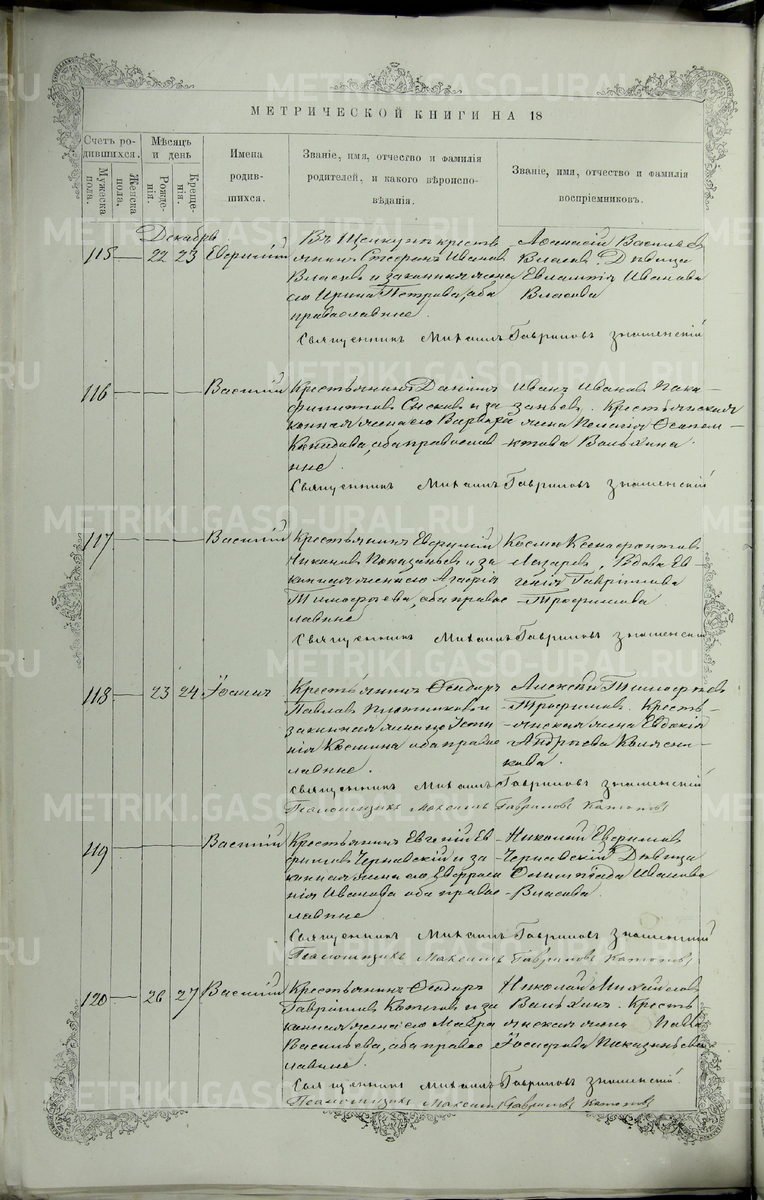 МЕТРИЧЕСКОЙ КНИГИ НА 18
Счетъ родившихся.
Мужеска пола.
Женска пола.
Мѣсяцъ и день
Рожденія.
Крещенія.
Имена родившихся.
Званіе, имя, отчество и фамилія родителей, и какого вѣроисповѣданія.
Званіе, имя, отчество и фамилія воспріемниковъ.
Декабрь
115 22 23 Евфимій
крестьянинъ Стефанъ Ивановъ
Власовъ и законная жена
его Ирина Петрова, оба
православные.
Аѳанасій Васильевъ
Власовъ. Дѣвица
Евлампія Иванова
Власова
Священникъ Михаилъ Гавриловъ Знаменскій
116 Василій
Крестьянинъ Даніилъ
и законная жена его Варвара
оба православные.
Иванъ Ивановъ
Крестьянская
жена
Священникъ Михаилъ Гавриловъ Знаменскій
117 Василій
Крестьянинъ Евфимій
и законная жена его Агафія
Тимофѣева, оба православные
Косма Ксенофонтовъ
Лазаревъ, Вдова Евгенія Гаврилова
Трофимова
Священникъ Михаилъ Гавриловъ Знаменскій
118 23 24 Іоаннъ
Крестьянинъ Ѳеодоръ
Павловъ Плотниковъ и
законная жена его
оба православные.
Алексѣй Тимофеевъ
Трофимовъ. Крестьянская жена Евдокія
Андреева
Священникъ Михаилъ Гавриловъ Знаменскій
Псаломщикъ Максимъ Гавриловъ
119 Василій
Крестьянинъ Евгеній Евфимовъ Чернавскій и законная жена его Евфросинія Иванова оба православные
Николай Евфимовъ
Чернавскій Дѣвица
Олимпіада Иванова
Власова.
Священникъ Михаилъ Гавриловъ Знаменский
Псаломщикъ Максимъ Гавриловъ
120 26 27 Василій
Крестьянинъ Ѳеодоръ
Гавриловъ и законная жена его Мавра
Васильева, оба православные.
Николай Михайловъ
Вальхинъ. Крестьянская жена
Іосифова
Священникъ Михаилъ Гавриловъ Знаменскій.
Псаломщикъ Максимъ Гавриловъ
METRIKI.GASO-URAL.RU